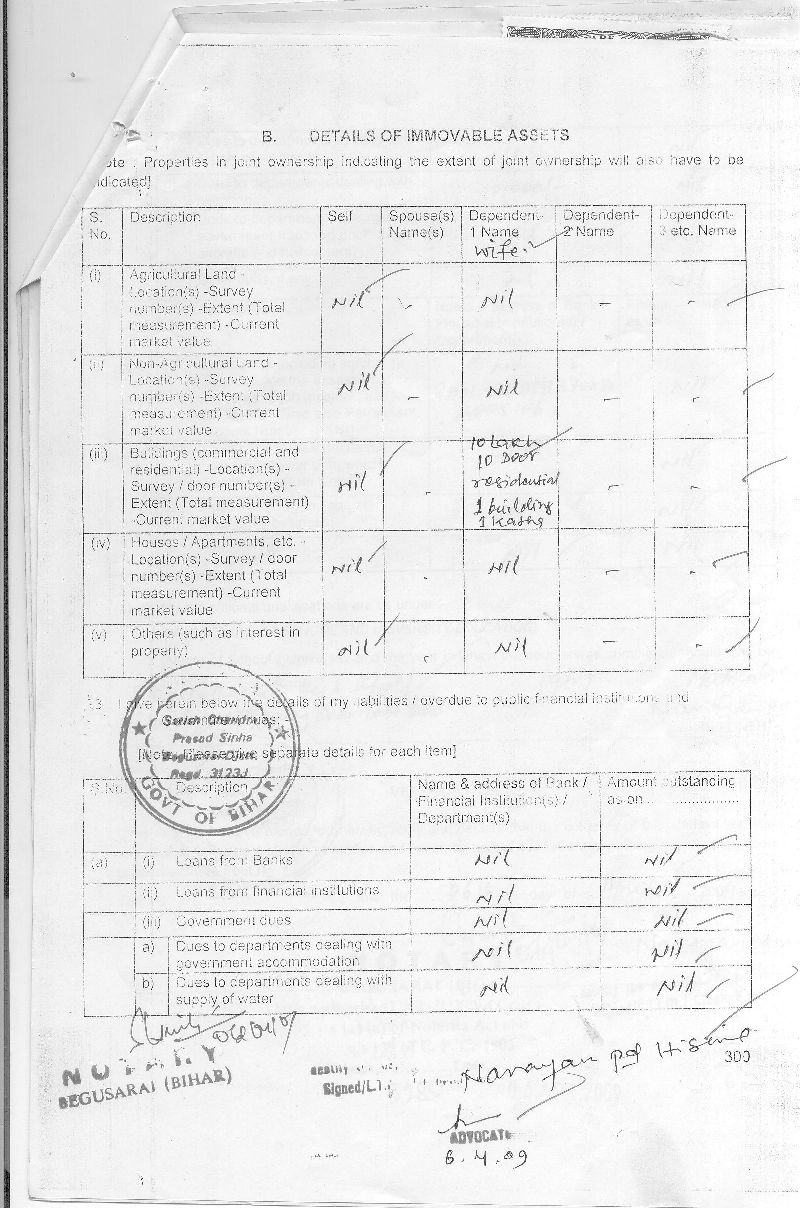 B. DETAILS OF IMMOVABLE ASSETS
Properties in joint ownership indicating the extent of joint ownership will also have to be
indicated]
S. No. Description Self Spouse(s) Name(s) Dependent-1 Name Dependent-2 Name Dependent-3 etc. Name
wife.
(i) Agricultural Land - Nil - Nil - -
Location(s) -Survey
number(s) -Extent (Total
measurement) -Current
market value
(ii) Non-Agricultural Land - Nil - Nil - -
Location(s) -Survey
number(s) -Extent (Total
measurement) -Current
market value
(iii) Buildings (commercial and Nil - 10 Lakh - -
residential) -Location(s) - 10 Door
Survey / door number(s) - residential
Extent (Total measurement) 1 building
-Current market value 1 Katha
(iv) Houses / Apartments, etc. - Nil - Nil - -
Location(s) -Survey / door
number(s) -Extent (Total
measurement) -Current
market value
(v) Others (such as interest in Nil - Nil - -
property)
I give herein below the details of my liabilities / overdue to public financial institutions and
Prasad Sinha
[Note: separate details for each item]
Regd. 3123
GOVT OF BIHAR
S.No. Description Name & address of Bank / Financial Institution(s) / Department(s) Amount outstanding as on ..................
(a) (i) Loans from Banks Nil Nil
(ii) Loans from financial institutions Nil Nil
(iii) Government dues Nil Nil
a) Dues to departments dealing with Nil Nil
government accommodation
b) Dues to departments dealing with Nil Nil
supply of water
NOTARY
BEGUSARAI (BIHAR)
Signed/L.T.
Narayan
300
ADVOCATE
6.4.09